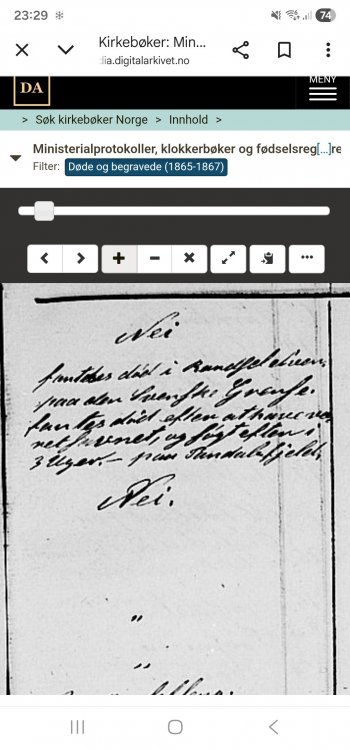 23:29
74
Kirkebøker: Min...
dia.digitalarkivet.no
DA
MENY
> Søk kirkebøker Norge > Innhold >
Ministerialprotokoller, klokkerbøker og fødselsreg[...]re
Filter: Døde og begravede (1865-1867)
Nei
fantes død i
paa den Svenske Grense
fantes død efter at have væ
ret savnet, og søgt efter i
3 Uger. – paa
Nei.
"
"